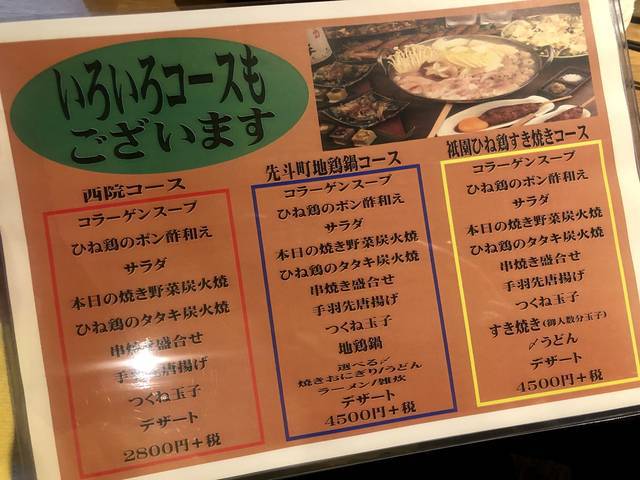 いろいろコースも
ございます
西院コース
コラーゲンスープ
ひね鶏のポン酢和え
サラダ
本日の焼き野菜炭火焼
ひね鶏のタタキ炭火焼
串焼き盛合せ
手羽先唐揚げ
つくね玉子
デザート
2800円+税
先斗町地鶏鍋コース
コラーゲンスープ
ひね鶏のポン酢和え
サラダ
本日の焼き野菜炭火焼
ひね鶏のタタキ炭火焼
串焼き盛合せ
手羽先唐揚げ
つくね玉子
地鶏鍋
選べる〆
焼きおにぎり/うどん
ラーメン/雑炊
デザート
4500円+税
祇園ひね鶏すき焼きコース
コラーゲンスープ
ひね鶏のポン酢和え
サラダ
本日の焼き野菜炭火焼
ひね鶏のタタキ炭火焼
串焼き盛合せ
手羽先唐揚げ
つくね玉子
すき焼き(御人数分玉子)
〆うどん
デザート
4500円+税